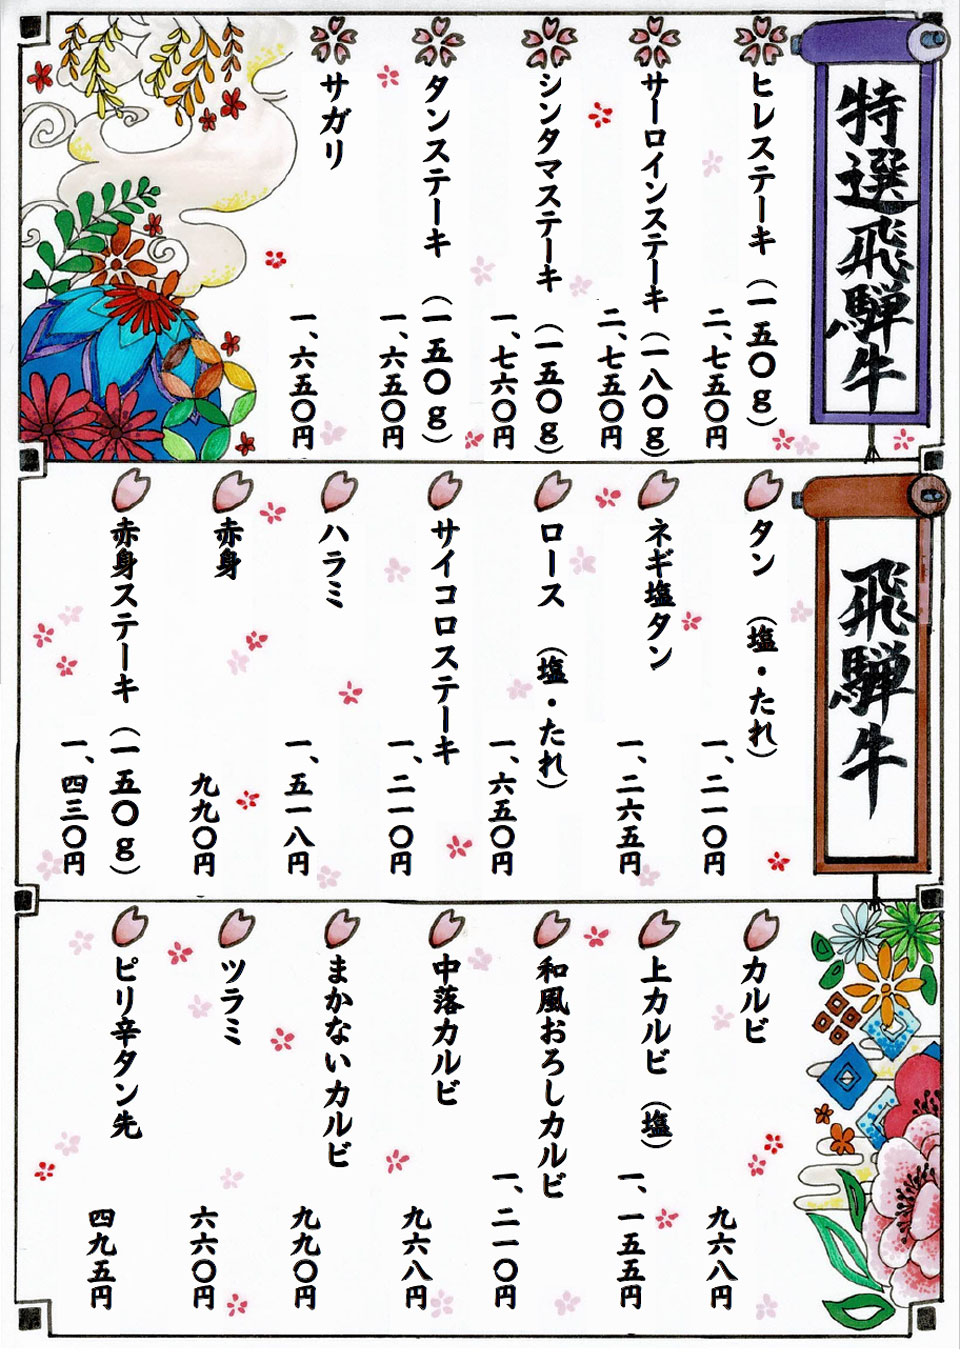 特選飛騨牛
ヒレステーキ（一五〇g）
二、七五〇円
サーロインステーキ（一八〇g）
二、七五〇円
シンタマステーキ（一五〇g）
一、七六〇円
タンステーキ（一五〇g）
一、六五〇円
サガリ
一、六五〇円
飛騨牛
タン（塩・たれ）
一、二一〇円
ネギ塩タン
一、二六五円
ロース（塩・たれ）
一、六五〇円
サイコロステーキ
一、二一〇円
ハラミ
一、五一八円
赤身
九九〇円
赤身ステーキ（一五〇g）
一、四三〇円
カルビ
九六八円
上カルビ（塩）
一、一五五円
和風おろしカルビ
一、二一〇円
中落カルビ
九六八円
まかないカルビ
九九〇円
ツラミ
六六〇円
ピリ辛タン先
四九五円